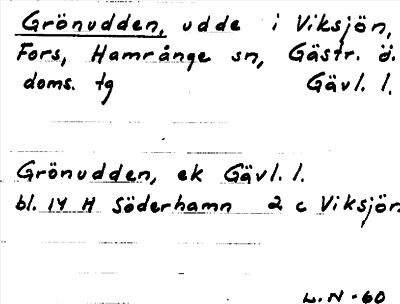 Grönudden, udde i Viksjön,
Fors, Hamrånge sn, Gästr. ö.
doms. tg Gävl. l.
Grönudden, ek Gävl. l.
bl. 14 H Söderhamn 2 c Viksjön
L.N-60